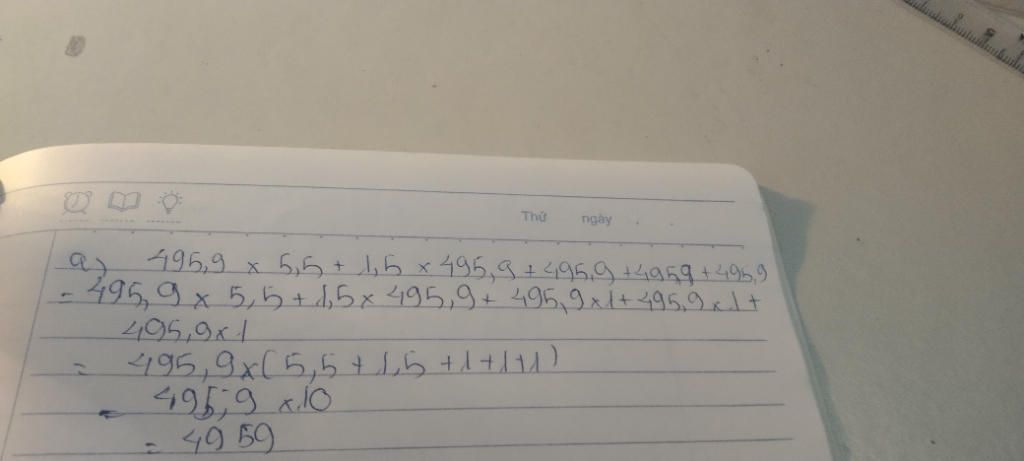 Thứ ngày . .
a) 495,9 × 5,5 + 1,5 × 495,9 + 495,9 + 495,9 + 495,9
= 495,9 × 5,5 + 1,5 × 495,9 + 495,9 × 1 + 495,9 × 1 +
495,9 × 1
= 495,9 × ( 5,5 + 1,5 + 1 + 1 + 1 )
= 495,9 × 10
= 4959